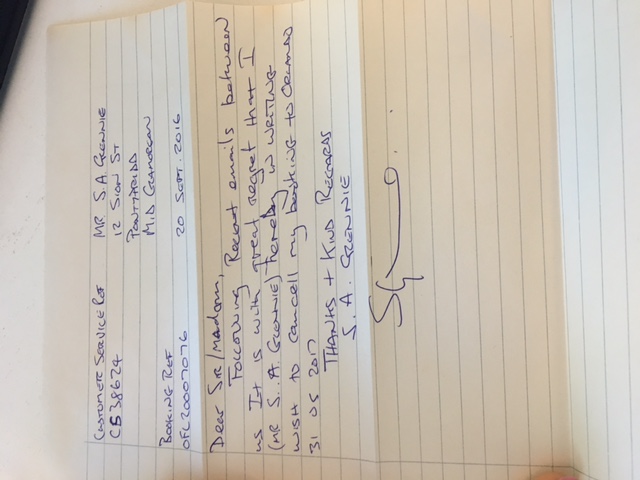 CUSTOMER SERVICE REF MR S.A GLENNIE
CB38624 12 SION ST
PONTYPRIDD
MID GLAMORGAN
BOOKING REF
OFL20007076 20 SEPT. 2016
Dear Sir/Madam,
Following Recent emails between
us It is with great regret that I
(MR S. A GLENNIE) hereby in WRITING
WISH to cancell my booking to ORLANDO
31 05 2017
THANKS + KIND REGARDS
S. A. GLENNIE